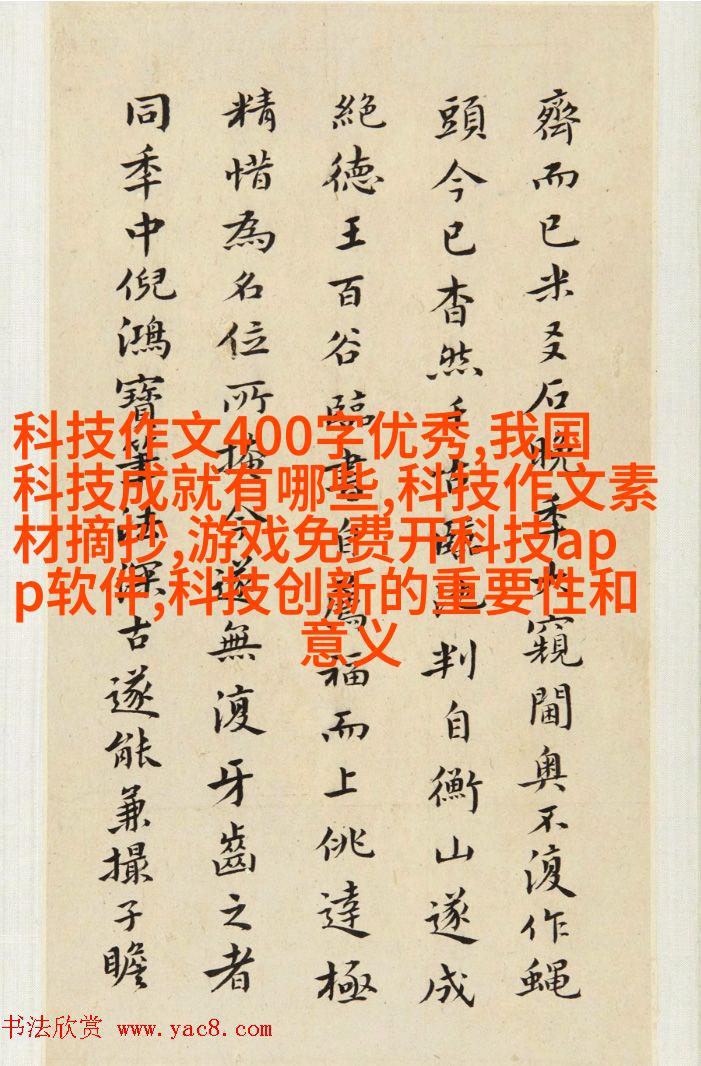 齊而已米友石晚季窺閫奥不復作蝿
頭今已杳然手判自衡山遂成
絶德王百谷臨書自薦福而上佻達極
精惜為名位所掩今遂無復牙齒之者
同季中倪鴻寶筆法深古遂能兼撮子瞻
科技作文400字优秀,我国
科技成就有哪些,科技作文素
材摘抄,游戏免费开科技ap
p软件,科技创新的重要性和
意义
书法欣赏 www.yac8.com